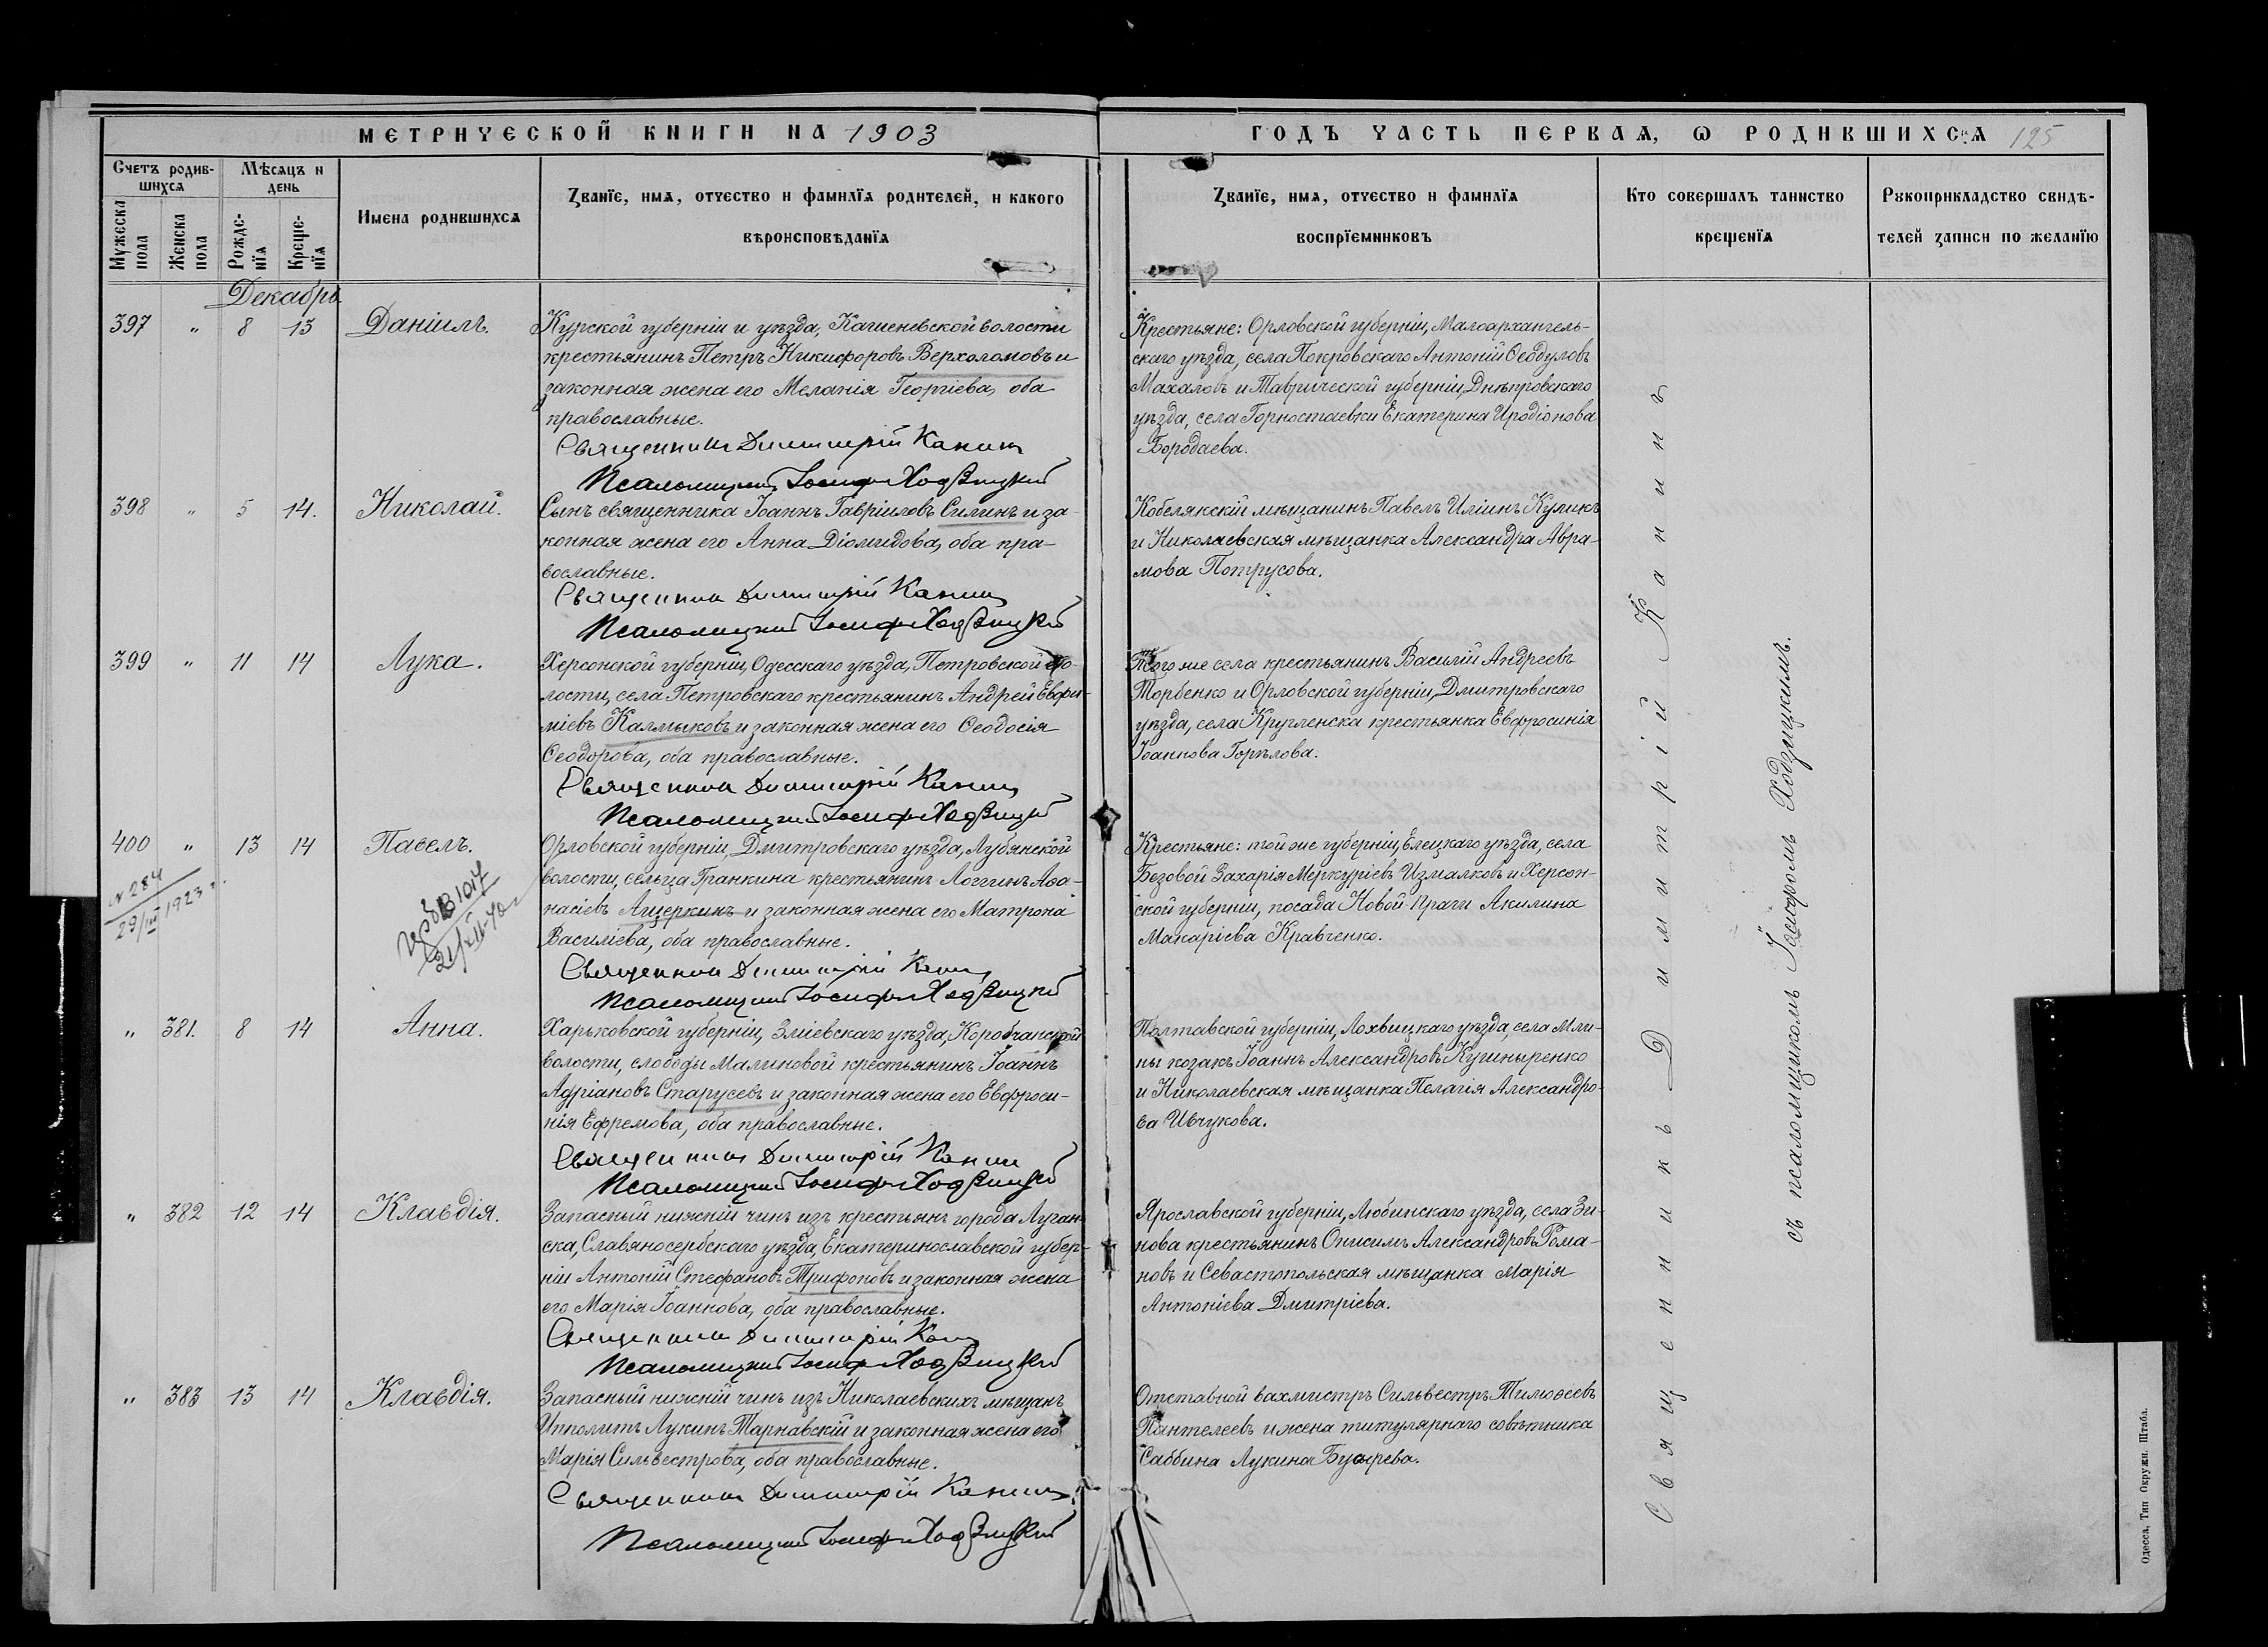 МЕТРИЧЕСКОЙ КНИГИ НА 1903
ГОДЪ ЧАСТЬ ПЕРВАЯ, Ѡ РОДИВШИХСЯ 125
Счетъ родив-
шихся
Мѣсяцъ и
день
Мужеска
пола
Женска
пола
Рожде-
нїя
Креще-
нїя
Имена родившихся
Званїе, имя, отчество и фамилїя родителей, и какого
вѣроисповѣданїя
Званїе, имя, отчество и фамилїя
воспрїемниковъ
Кто совершалъ таинство
крещенїя
Рукоприкладство свидѣ-
телей записи по желанїю
Декабрь.
397 " 8 13 Даніилъ.
Курской губерніи и уѣзда, Каменевской волости
крестьянинъ Петръ Никифоровъ Верхоломовъ и
законная жена его Меланія Георгіева, оба
православные.
Священникъ Димитрій Канин
Псаломщикъ Іосифъ Ходзицкій
Крестьяне: Орловской губерніи, Малоархангель-
скаго уѣзда, села Покровскаго Антоній Ѳеодуловъ
Махаловъ и Таврической губерніи, Днѣпровскаго
уѣзда, села Горностаевки Екатерина Иродіонова
Бородаева.
398 " 5 14. Николай.
Сынъ священника Іоаннъ Гавріиловъ Силинъ и за-
конная жена его Анна Діомидова, оба пра-
вославные.
Священникъ Димитрій Канин
Псаломщикъ Іосифъ Ходзицкій
Кобелякскій мѣщанинъ Павелъ Иліинъ Куликъ
и Николаевская мѣщанка Александра Авра-
мова Потрусова.
399 " 11 14 Лука.
Херсонской губерніи, Одесскаго уѣзда, Петровской во-
лости, села Петровскаго крестьянинъ Андрей Евфи-
міевъ Калмыковъ и законная жена его Ѳеодосія
Ѳеодорова, оба православные.
Священникъ Димитрій Канин
Псаломщикъ Іосифъ Ходзицкій
Того же села крестьянинъ Василій Андреевъ
Торбенко и Орловской губерніи, Дмитровскаго
уѣзда, села Кругленска крестьянка Евфросинія
Іоаннова Горѣлова.
400 " 13 14 Павелъ.
№ 284
29/III 1923 г.
21/XII-40
Орловской губерніи, Дмитровскаго уѣзда, Лубянской
волости, сельца Гранкина крестьянинъ Логгинъ Аѳа-
насіевъ Ащеркинъ и законная жена его Матрона
Василіева, оба православные.
Священникъ Димитрій Канин
Псаломщикъ Іосифъ Ходзицкій
Крестьяне: той же губерніи, Елецкаго уѣзда, села
Безовой Захарія Меркуріевъ Измалковъ и Херсон-
ской губерніи, посада Новой-Праги Акилина
Макаріева Кравченко.
" 381. 8 14 Анна.
Харьковской губерніи, Зміевскаго уѣзда, Коробчанской
волости, слободы Малиновой крестьянинъ Іоаннъ
Адріановъ Старусевъ и законная жена его Евфроси-
нія Ефремова, оба православные.
Священникъ Димитрій Канин
Псаломщикъ Іосифъ Ходзицкій
Полтавской губерніи, Лохвицкаго уѣзда, села Мли-
ны козакъ Іоаннъ Александровъ Кушныренко
и Николаевская мѣщанка Пелагія Александро-
ва Ивчукова.
" 382 12 14 Клавдія.
Запасный нижній чинъ изъ крестьянъ города Луган-
ска, Славяносербскаго уѣзда, Екатеринославской губер-
ніи Антоній Стефановъ Трифоновъ и законная жена
его Марія Іоаннова, оба православные.
Священникъ Димитрій Канин
Псаломщикъ Іосифъ Ходзицкій
Ярославской губерніи, Любимскаго уѣзда, села Зи-
нова крестьянинъ Онисимъ Александровъ Рома-
новъ и Севастопольская мѣщанка Марія
Антоніева Дмитріева.
" 383 13 14 Клавдія.
Запасный нижній чинъ изъ Николаевскихъ мѣщанъ
Ипполитъ Лукинъ Тарнавскій и законная жена его
Марія Сильвестрова, оба православные.
Священникъ Димитрій Канин
Псаломщикъ Іосифъ Ходзицкій
Отставной вахмистръ Сильвестръ Тимоѳеевъ
Пантелеевъ и жена титулярнаго совѣтника
Саббина Лукина Бузырева.
Священникъ Димитрій Канинъ
съ псаломщикомъ Іосифомъ Ходзицкимъ.
Одесса, Тип Окружн. Штаба.